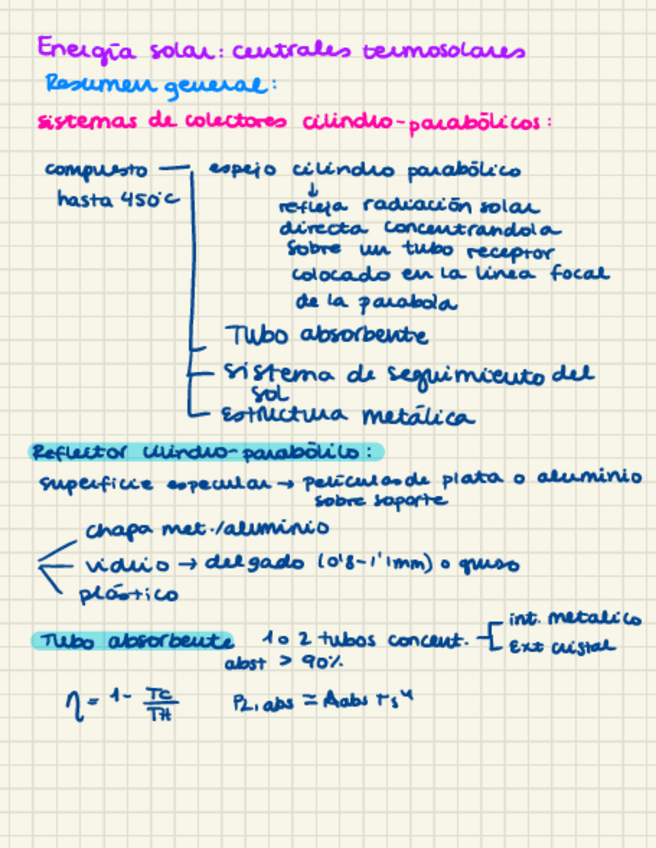 Energía solar: centrales termosolares
Resumen general:
sistemas de colectores cilindro-parabólicos:
compuesto — espejo cilindro parabólico
hasta 450ºC
↓
refleja radiación solar
directa concentrandola
sobre un tubo receptor
colocado en la linea focal
de la parabola
Tubo absorbente
sistema de seguimiento del
sol
estructura metálica
Reflector cilindro-parabólico:
superficie especular → películas de plata o aluminio
sobre soporte
chapa met./aluminio
vidrio → delgado (0'8-1'1mm) o grueso
plástico
Tubo absorbente 1 o 2 tubos concent.
int. metalico
Ext cristal
abst > 90%
η = 1 - TC/TH
PL,abs = Aabs Ts⁴